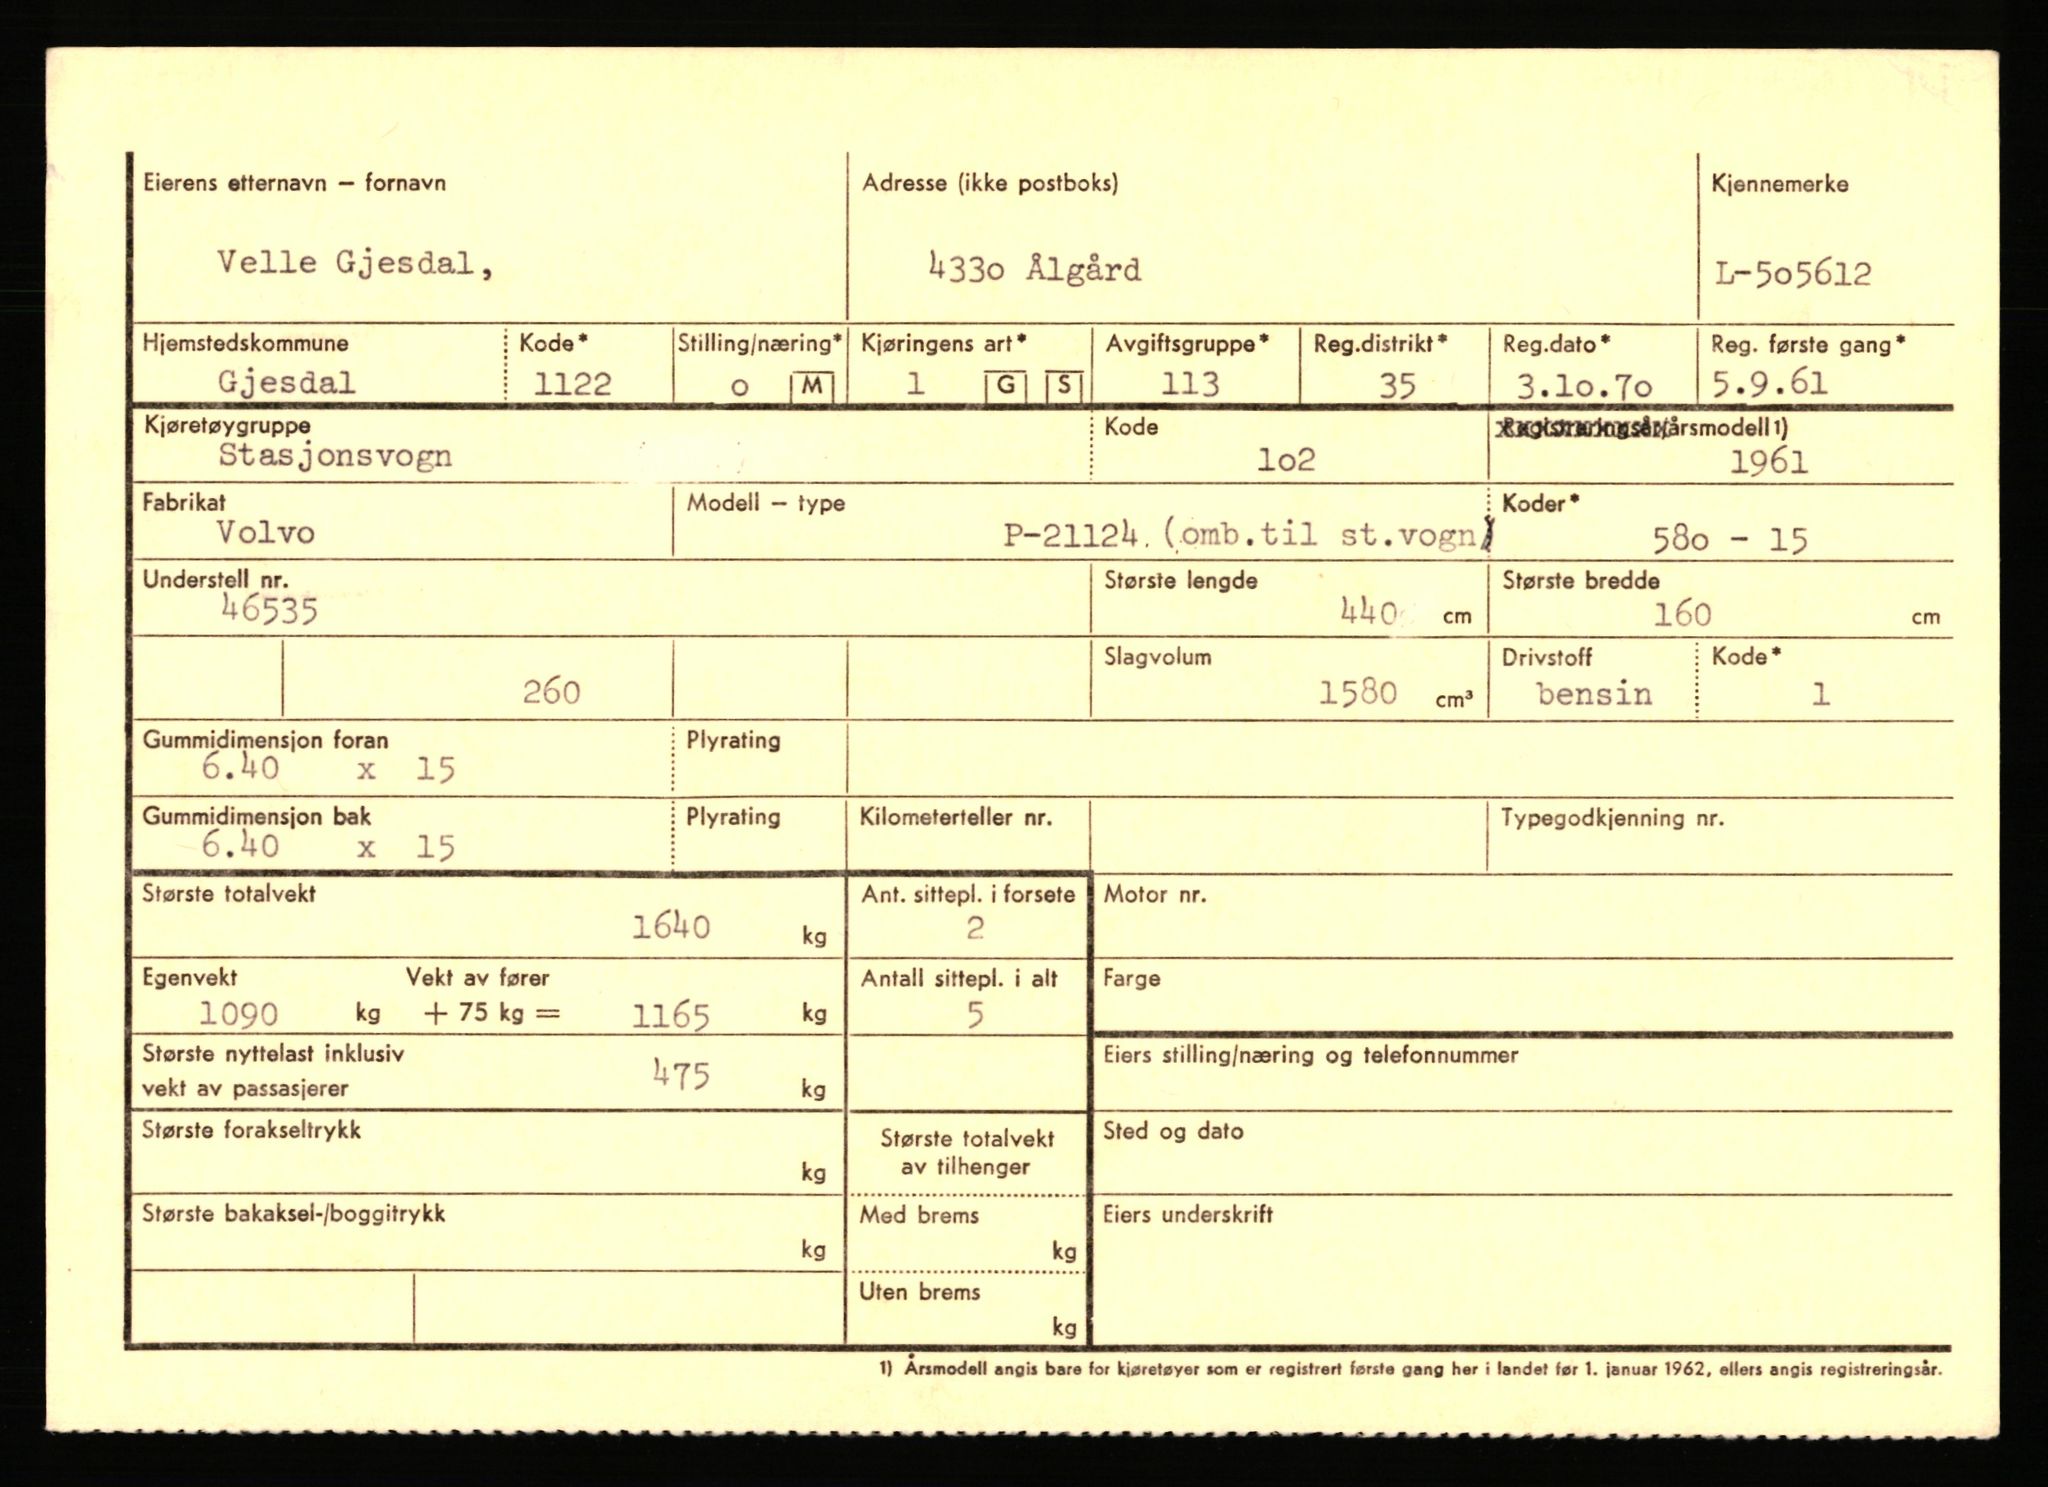 Eierens etternavn – fornavn
Adresse (ikke postboks)
Kjennemerke
Velle Gjesdal,
433o Ålgård
L-5o5612
Hjemstedskommune
Kode*
Stilling/næring*
Kjøringens art*
Avgiftsgruppe*
Reg.distrikt*
Reg.dato*
Reg. første gang*
Gjesdal
1122
o M
1 G S
113
35
3.1o.7o
5.9.61
Kjøretøygruppe
Kode
Registreringsår/årsmodell 1)
Stasjonsvogn
1o2
1961
Fabrikat
Modell – type
Koder*
Volvo
P-21124. (omb.til st.vogn)
58o - 15
Understell nr.
Største lengde
Største bredde
46535
440 cm
160 cm
Slagvolum
Drivstoff
Kode*
260
1580 cm³
bensin
1
Gummidimensjon foran
Plyrating
6.40 x 15
Gummidimensjon bak
Plyrating
Kilometerteller nr.
Typegodkjenning nr.
6.40 x 15
Største totalvekt
Ant. sittepl. i forsete
Motor nr.
1640 kg
2
Egenvekt
Vekt av fører
Antall sittepl. i alt
Farge
1090 kg + 75 kg = 1165 kg
5
Største nyttelast inklusiv
vekt av passasjerer
475 kg
Eiers stilling/næring og telefonnummer
Største forakseltrykk
kg
Største totalvekt
av tilhenger
Sted og dato
Største bakaksel-/boggitrykk
kg
Med brems
kg
Eiers underskrift
Uten brems
kg
1) Årsmodell angis bare for kjøretøyer som er registrert første gang her i landet før 1. januar 1962, ellers angis registreringsår.